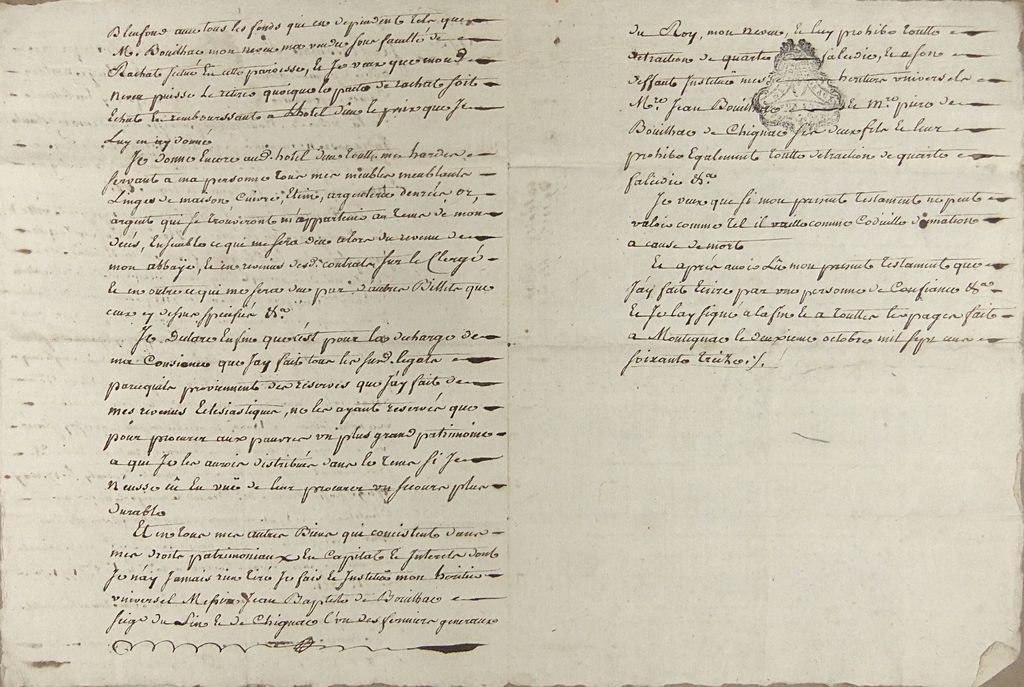 Blenfond avec tous les fonds qui en dependent tels que
M. Bouilhac mon neveu ma vendu sous faculté de
Rachat située en cette paroisse, et Je veux que mond.
neveu puisse le retirer quoique le pacte de rachat soit
Echu en remboursant a l'hotel dieu le prix que Je
luy en ay donné
Je donne encore aud. hotel dieu toutes mes hardes
servant a ma personne tous mes meubles meublants
Linges de maison Cuivre, Etain, argenterie denrées or,
argent qui se trouveront m'appartenir au tems de mon
decés, Ensemble ce qui me sera deu alors du revenu de
mon abbaye, et en revenus desd. contrats sur le Clergé
et en outre ce qui me sera du par d'autres Billets que
ceux cy dessus specifiés &a
Je declare enfin que c'est pour la decharge de
ma Consience que Jay fait tous les susd. legats
parcequils proviennent des reserves que J'ay fait de
mes revenus Eclesiastiques, ne les ayant reservés que
pour procurer aux pauvres un plus grand patrimoine
a qui Je les aurois distribués dans le tems si Je
n'eusse eû En vuë de leur procurer un secours plus
durable
Et en tous mes autres Biens qui consistent dans
mes droits patrimoniaux En Capital et Interets dont
Je n'ay Jamais rien tiré Je fais et Institüe mon heritier
universel Messire Jean Baptiste de Bouilhac
Sieg. du Lin et de Chignac l'un des fermiers generaux
du Roy, mon neveu, et luy prohibe toutte
detraction de quarte falcidie, et a son
deffaut Institüe mes heritiers universels
M.re Jean Bouilhac et M.re pierre de
Bouilhac de Chignac ses deux fils et leur
prohibe Egalement toutte detraction de quarte
falcidie &a
Je veux que si mon present testament ne peut
valoir comme tel il vaille comme Codicille donnation
a cause de mort
Et aprés avoir Lû mon present testament que
J'ay fait Ecrire par une personne de Confiance &a
Et Je l'ay signé a la fin et a touttes les pages fait
a Montignac le deuxieme octobre mil sept cens
soixante treize ./.